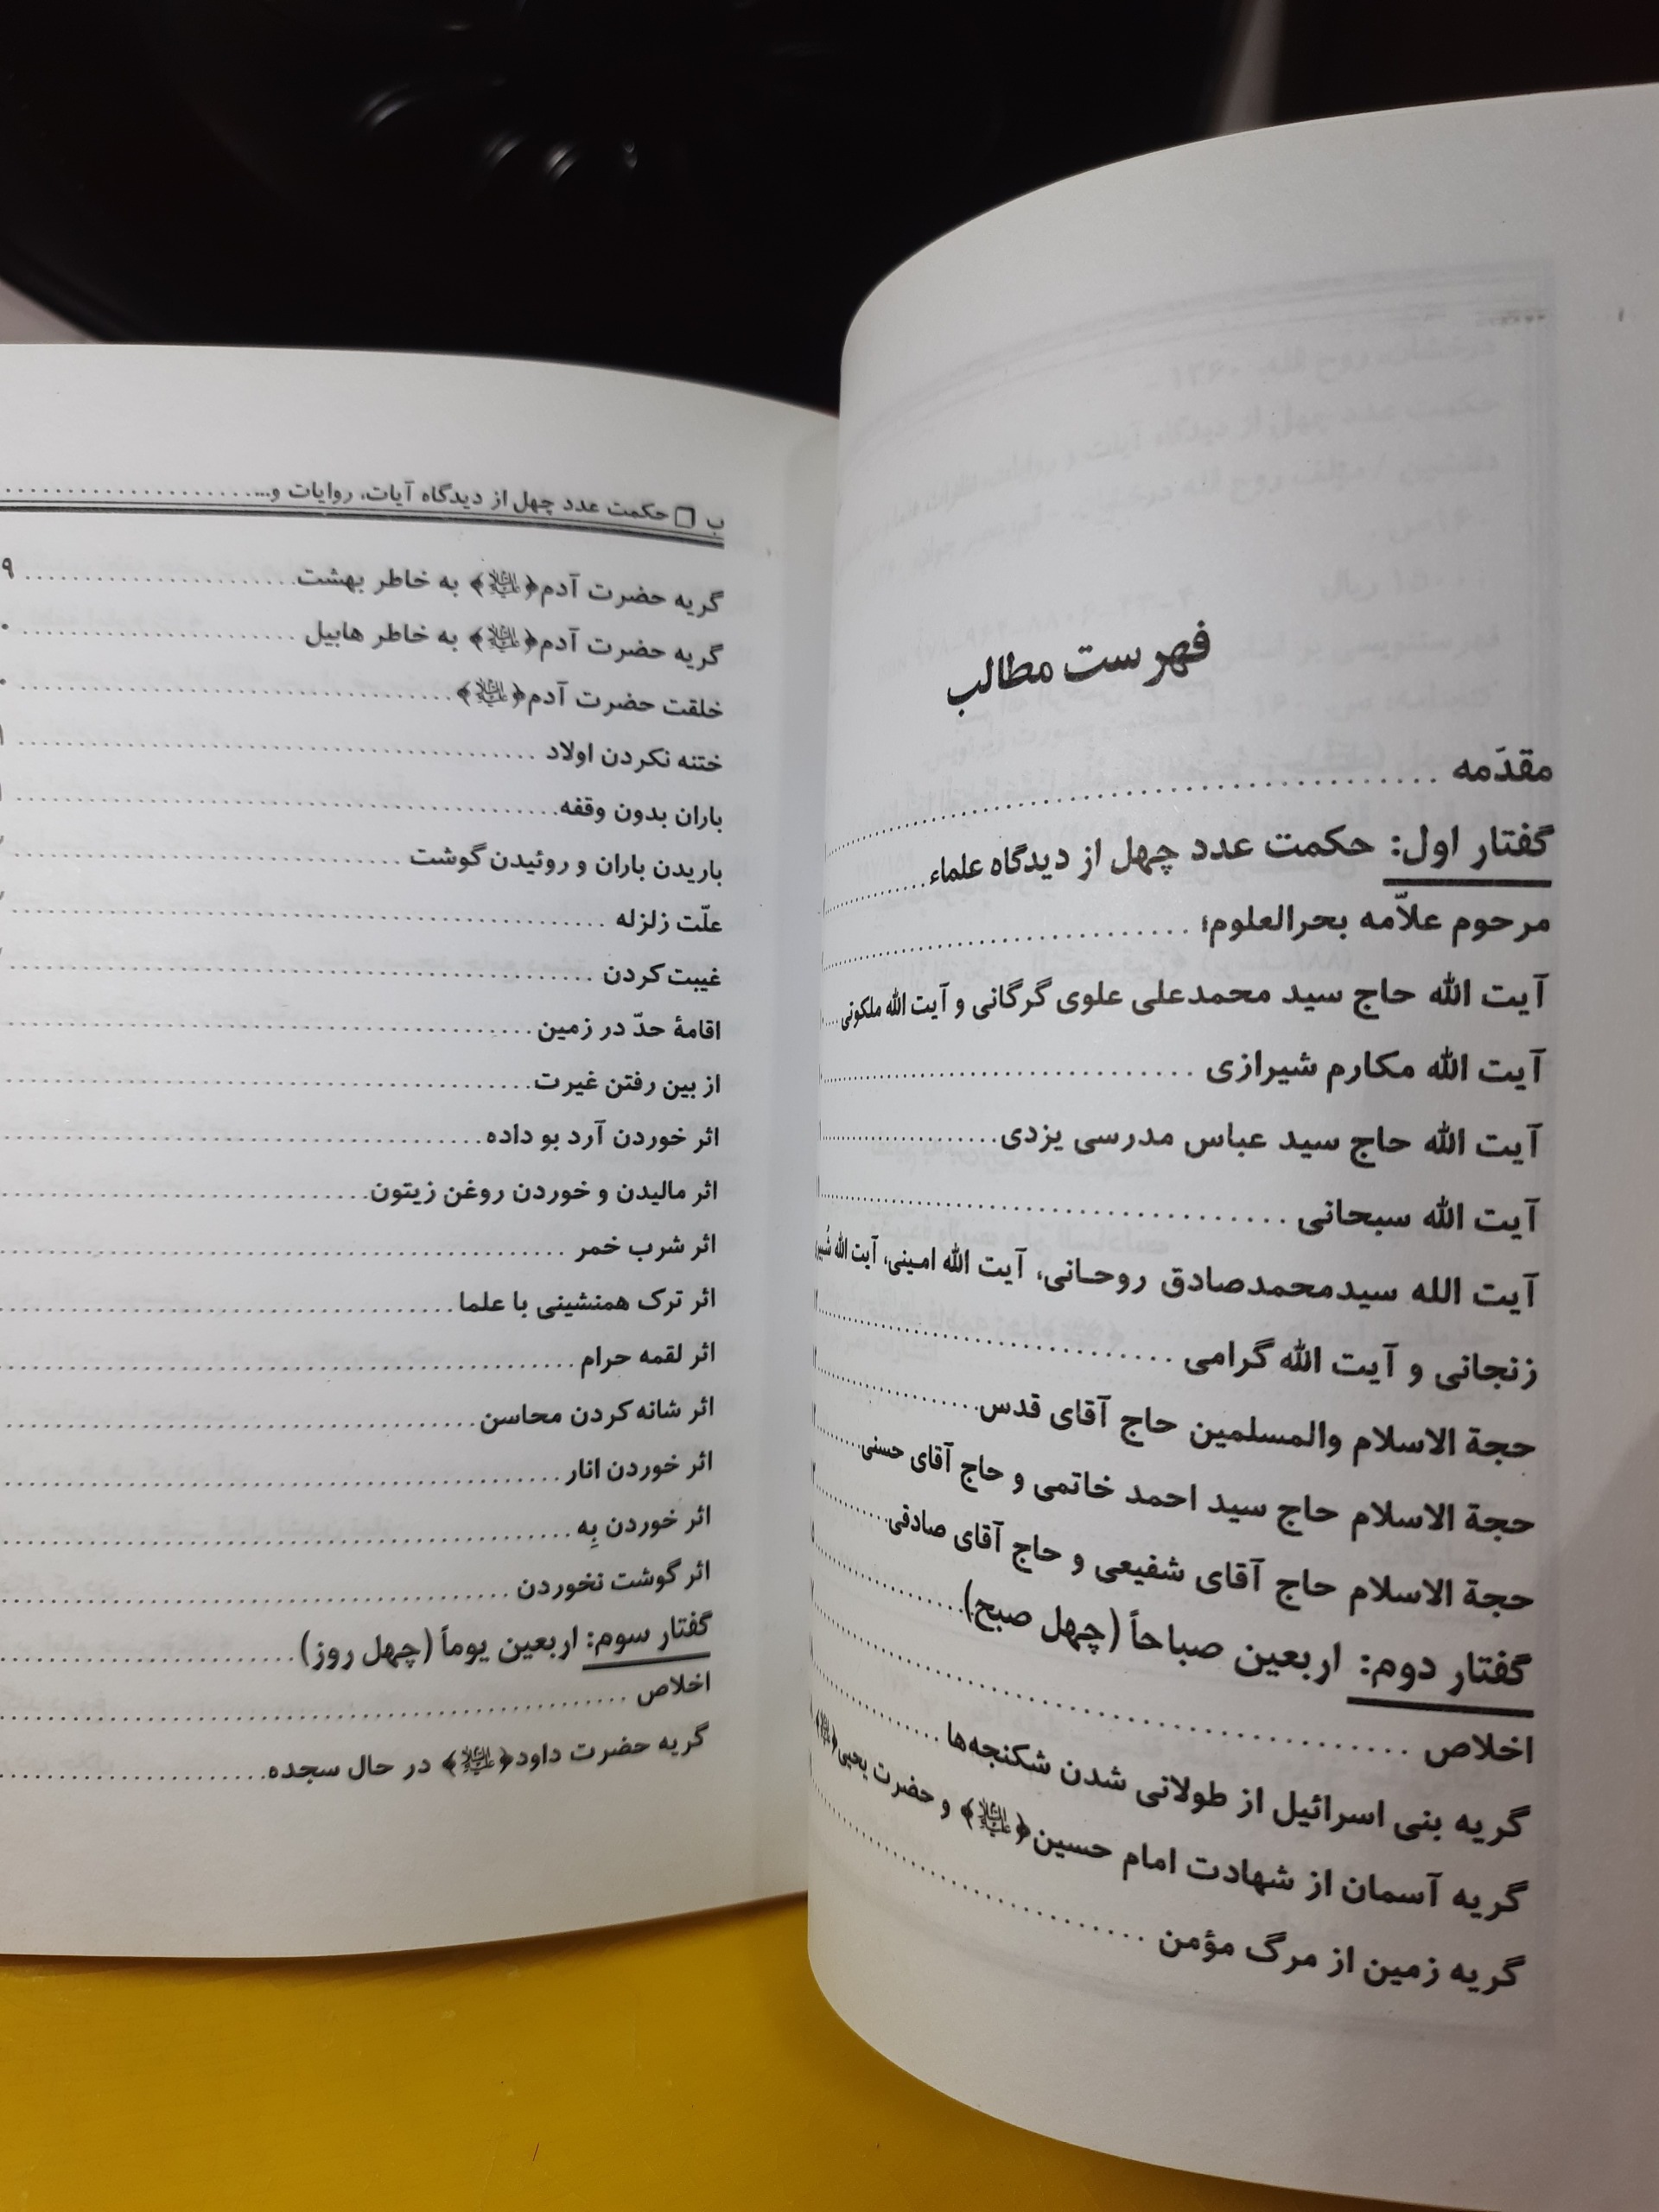 فهرست مطالب
مقدّمه
گفتار اول: حکمت عدد چهل از دیدگاه علماء
مرحوم علاّمه بحرالعلوم؛
آیت الله حاج سید محمدعلی علوی گرگانی و آیت الله ملکوتی
آیت الله مکارم شیرازی
آیت الله حاج سید عباس مدرسی یزدی
آیت الله سبحانی
آیت الله سیدمحمدصادق روحانی، آیت الله امینی، آیت الله
زنجانی و آیت الله گرامی
حجة الاسلام والمسلمین حاج آقای قدس
حجة الاسلام حاج سید احمد خاتمی و حاج آقای حسنی
حجة الاسلام حاج آقای شفیعی و حاج آقای صادقی
گفتار دوم: اربعین صباحاً (چهل صبح)
اخلاص
گریه بنی اسرائیل از طولانی شدن شکنجه‌ها
گریه آسمان از شهادت امام حسین﴿علیه السلام﴾ و حضرت یحیی﴿علیه السلام﴾
گریه زمین از مرگ مؤمن
ب □ حکمت عدد چهل از دیدگاه آیات، روایات و...
گریه حضرت آدم﴿علیه السلام﴾ به خاطر بهشت ۹
گریه حضرت آدم﴿علیه السلام﴾ به خاطر هابیل
خلقت حضرت آدم﴿علیه السلام﴾
ختنه نکردن اولاد
باران بدون وقفه
باریدن باران و روئیدن گوشت
علّت زلزله
غیبت کردن
اقامهٔ حدّ در زمین
از بین رفتن غیرت
اثر خوردن آرد بو داده
اثر مالیدن و خوردن روغن زیتون
اثر شرب خمر
اثر ترک همنشینی با علما
اثر لقمه حرام
اثر شانه کردن محاسن
اثر خوردن انار
اثر خوردن بِه
اثر گوشت نخوردن
گفتار سوم: اربعین یوماً (چهل روز)
اخلاص
گریه حضرت داود﴿علیه السلام﴾ در حال سجده